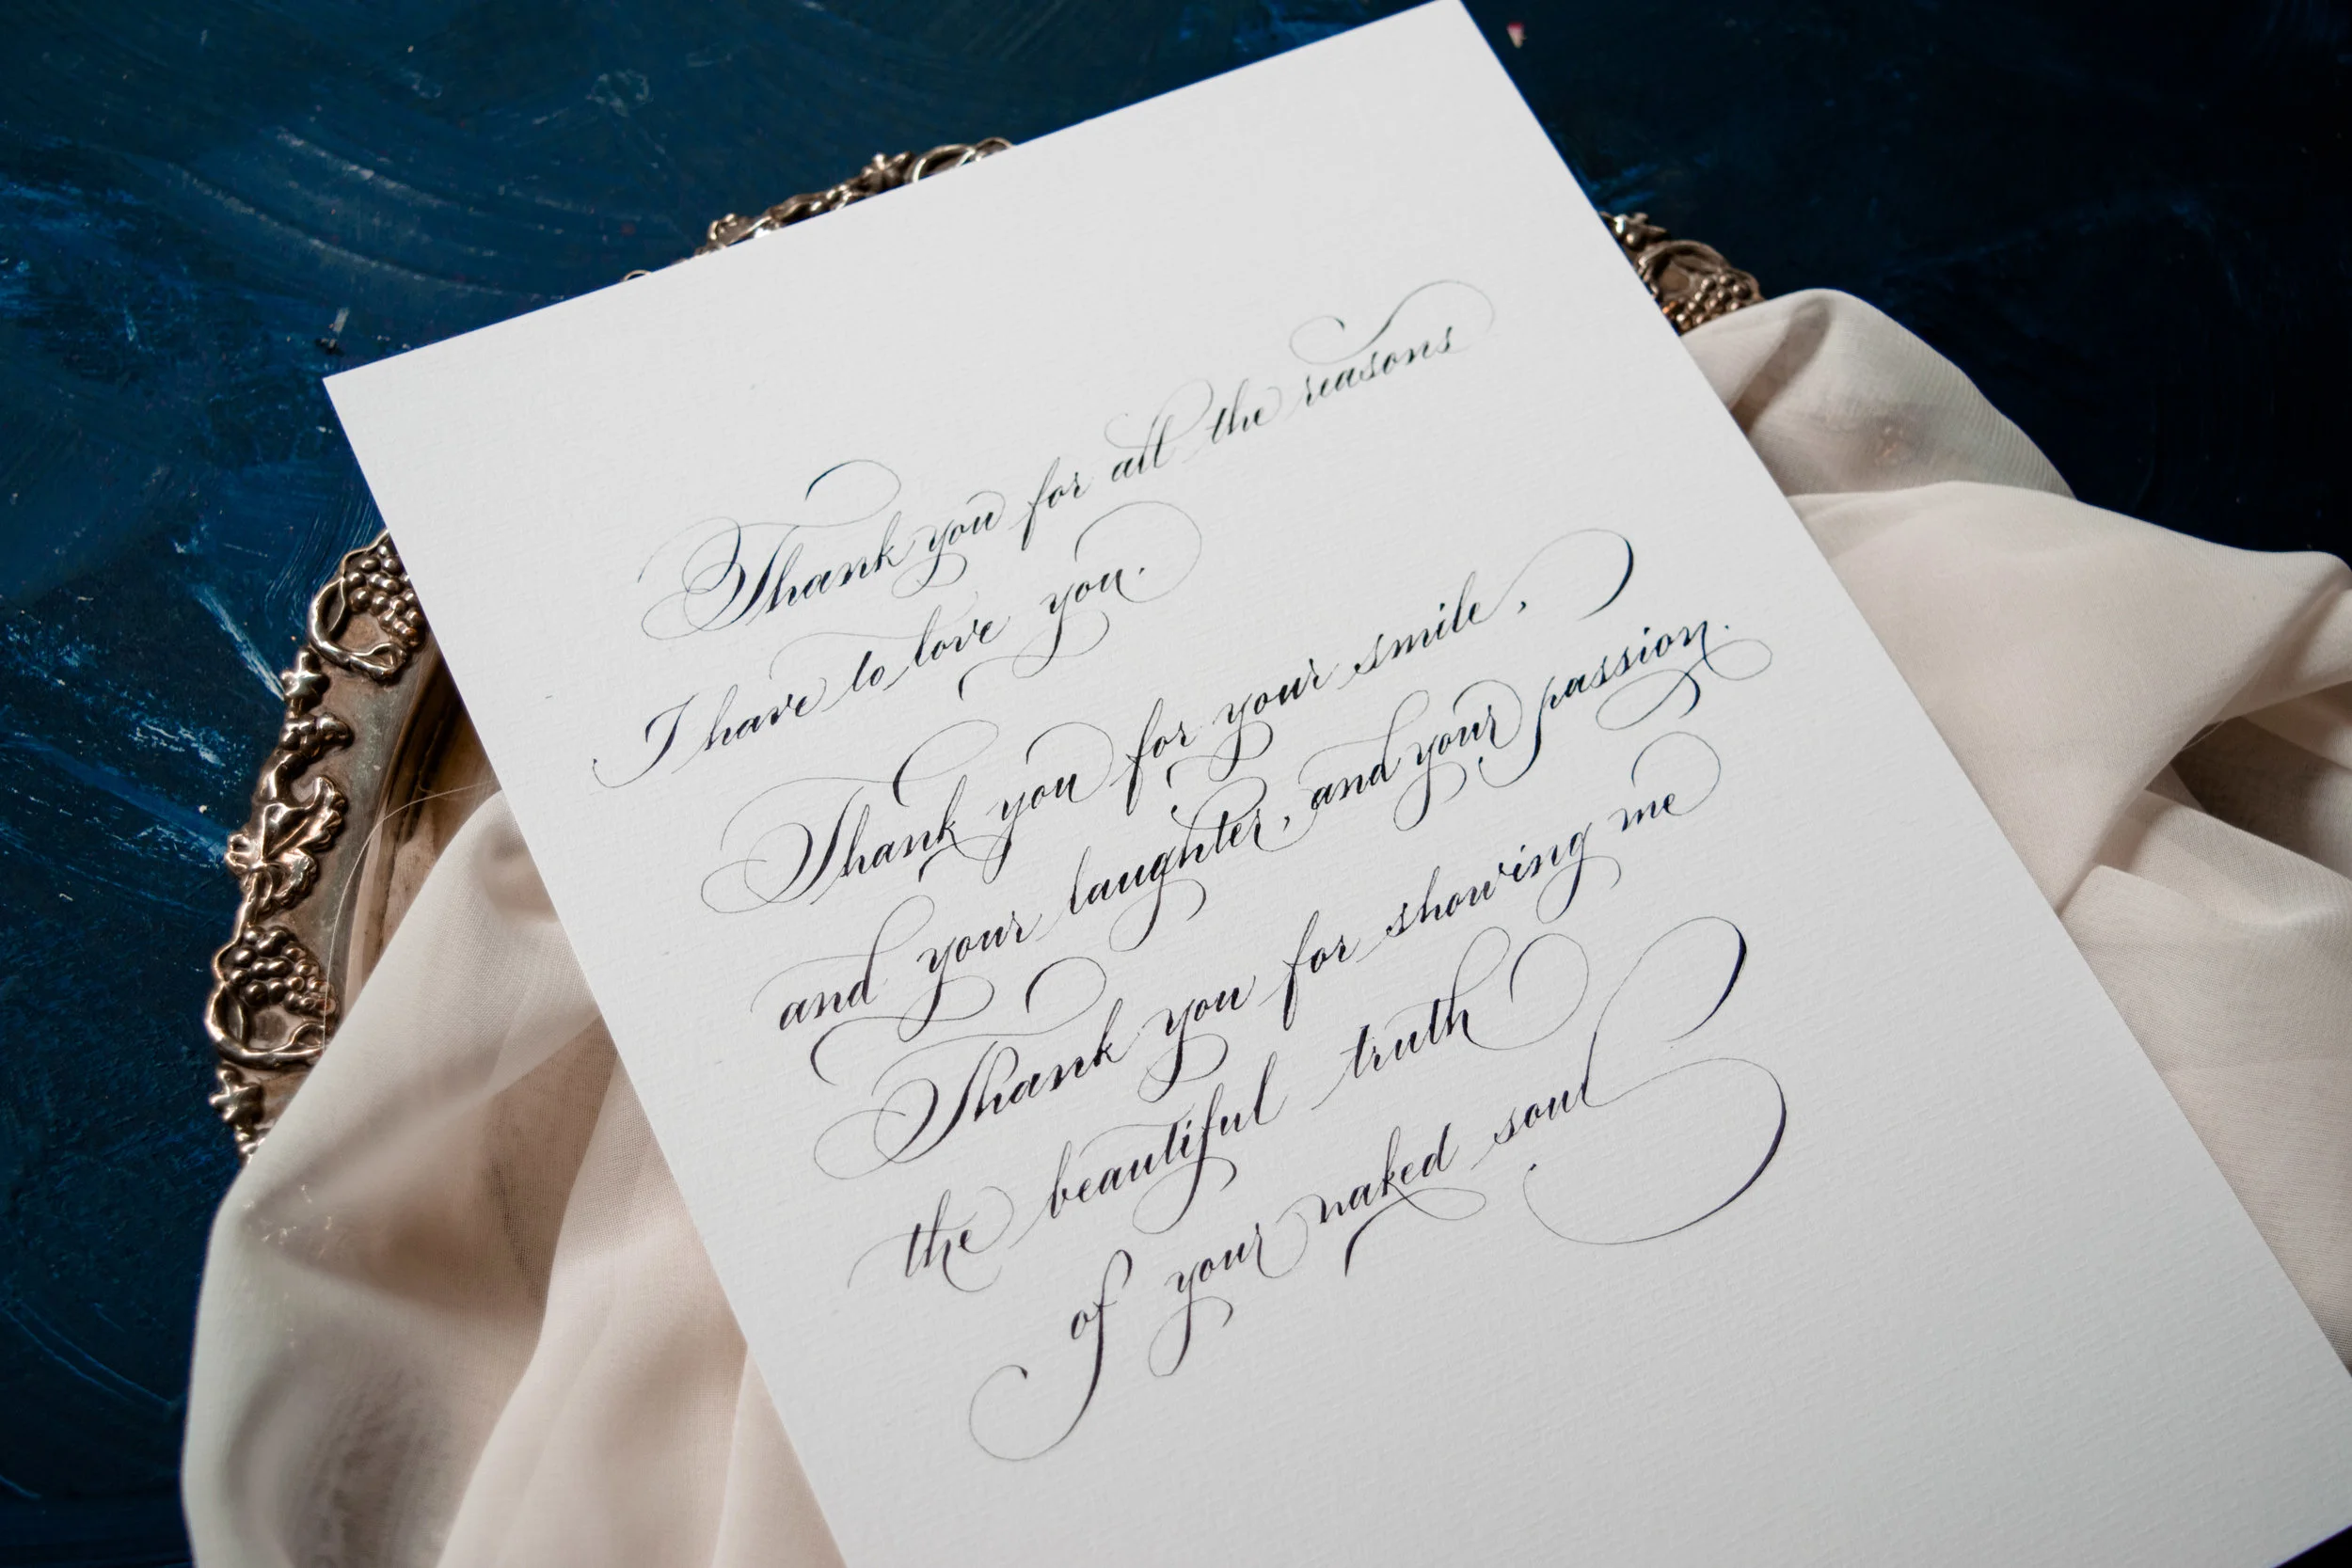 Thank you for all the reasons
I have to love you.
Thank you for your smile,
and your laughter, and your passion.
Thank you for showing me
the beautiful truth
of your naked soul